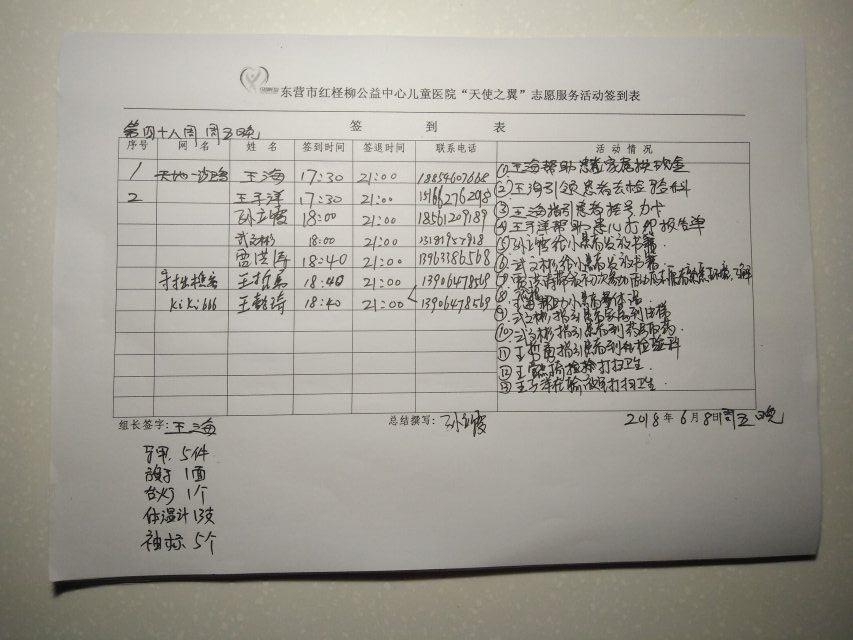 东营市红柽柳公益中心儿童医院“天使之翼”志愿服务活动签到表
签 到 表
第四十八周 周五晚
序号 网 名 姓 名 签到时间 签退时间 联系电话 活 动 情 况
1 天地一沙鸥 王海 17:30 21:00
2 王子洋 17:30 21:00 15166276298
孙立霞 18:00 21:00 18561209189
武文彬 18:00 21:00 13181957918
雷洪涛 18:40 21:00 13963386568
王哲禹 18:40 21:00 13906478569
kiki666 王懿诗 18:40 21:00 13906478569
①王海帮助患者家属换现金
②王海引领患者去检验科
③王海指引患者挂号办卡
④王子洋帮助患儿打印报告单
⑤孙立霞给小患者发放书籍
⑥武文彬给小患者发放书籍
⑧帮助小患者量体温
⑨武文彬指引患者家属到
⑩武文彬指引患者到
⑪王哲禹指引患者到检验科
⑫王懿诗打扫卫生
⑬王子洋在输液室打扫卫生
组长签字:王海 总结撰写:孙立霞 2018年6月8日周五晚
马甲 5件
旗子 1面
台灯 1个
体温计 13支
袖标 5个